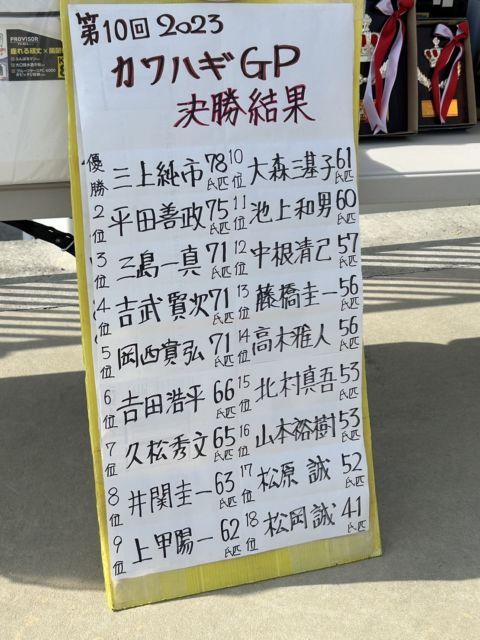 PROVISOR
第10回 2023
カワハギGP
決勝結果
優勝 三上純市 78匹
2位 平田善政 75匹
3位 三島一真 71匹
4位 吉武賢次 71匹
5位 岡西寛弘 71匹
6位 吉田浩平 66匹
7位 久松秀文 65匹
8位 井関圭一 63匹
9位 上甲陽一 62匹
10位 大森三基子 61匹
11位 池上和男 60匹
12位 中根清己 57匹
13位 藤橋圭一 56匹
14位 高木雅人 56匹
15位 北村真吾 53匹
16位 山本裕樹 53匹
17位 松原 誠 52匹
18位 松岡誠 41匹